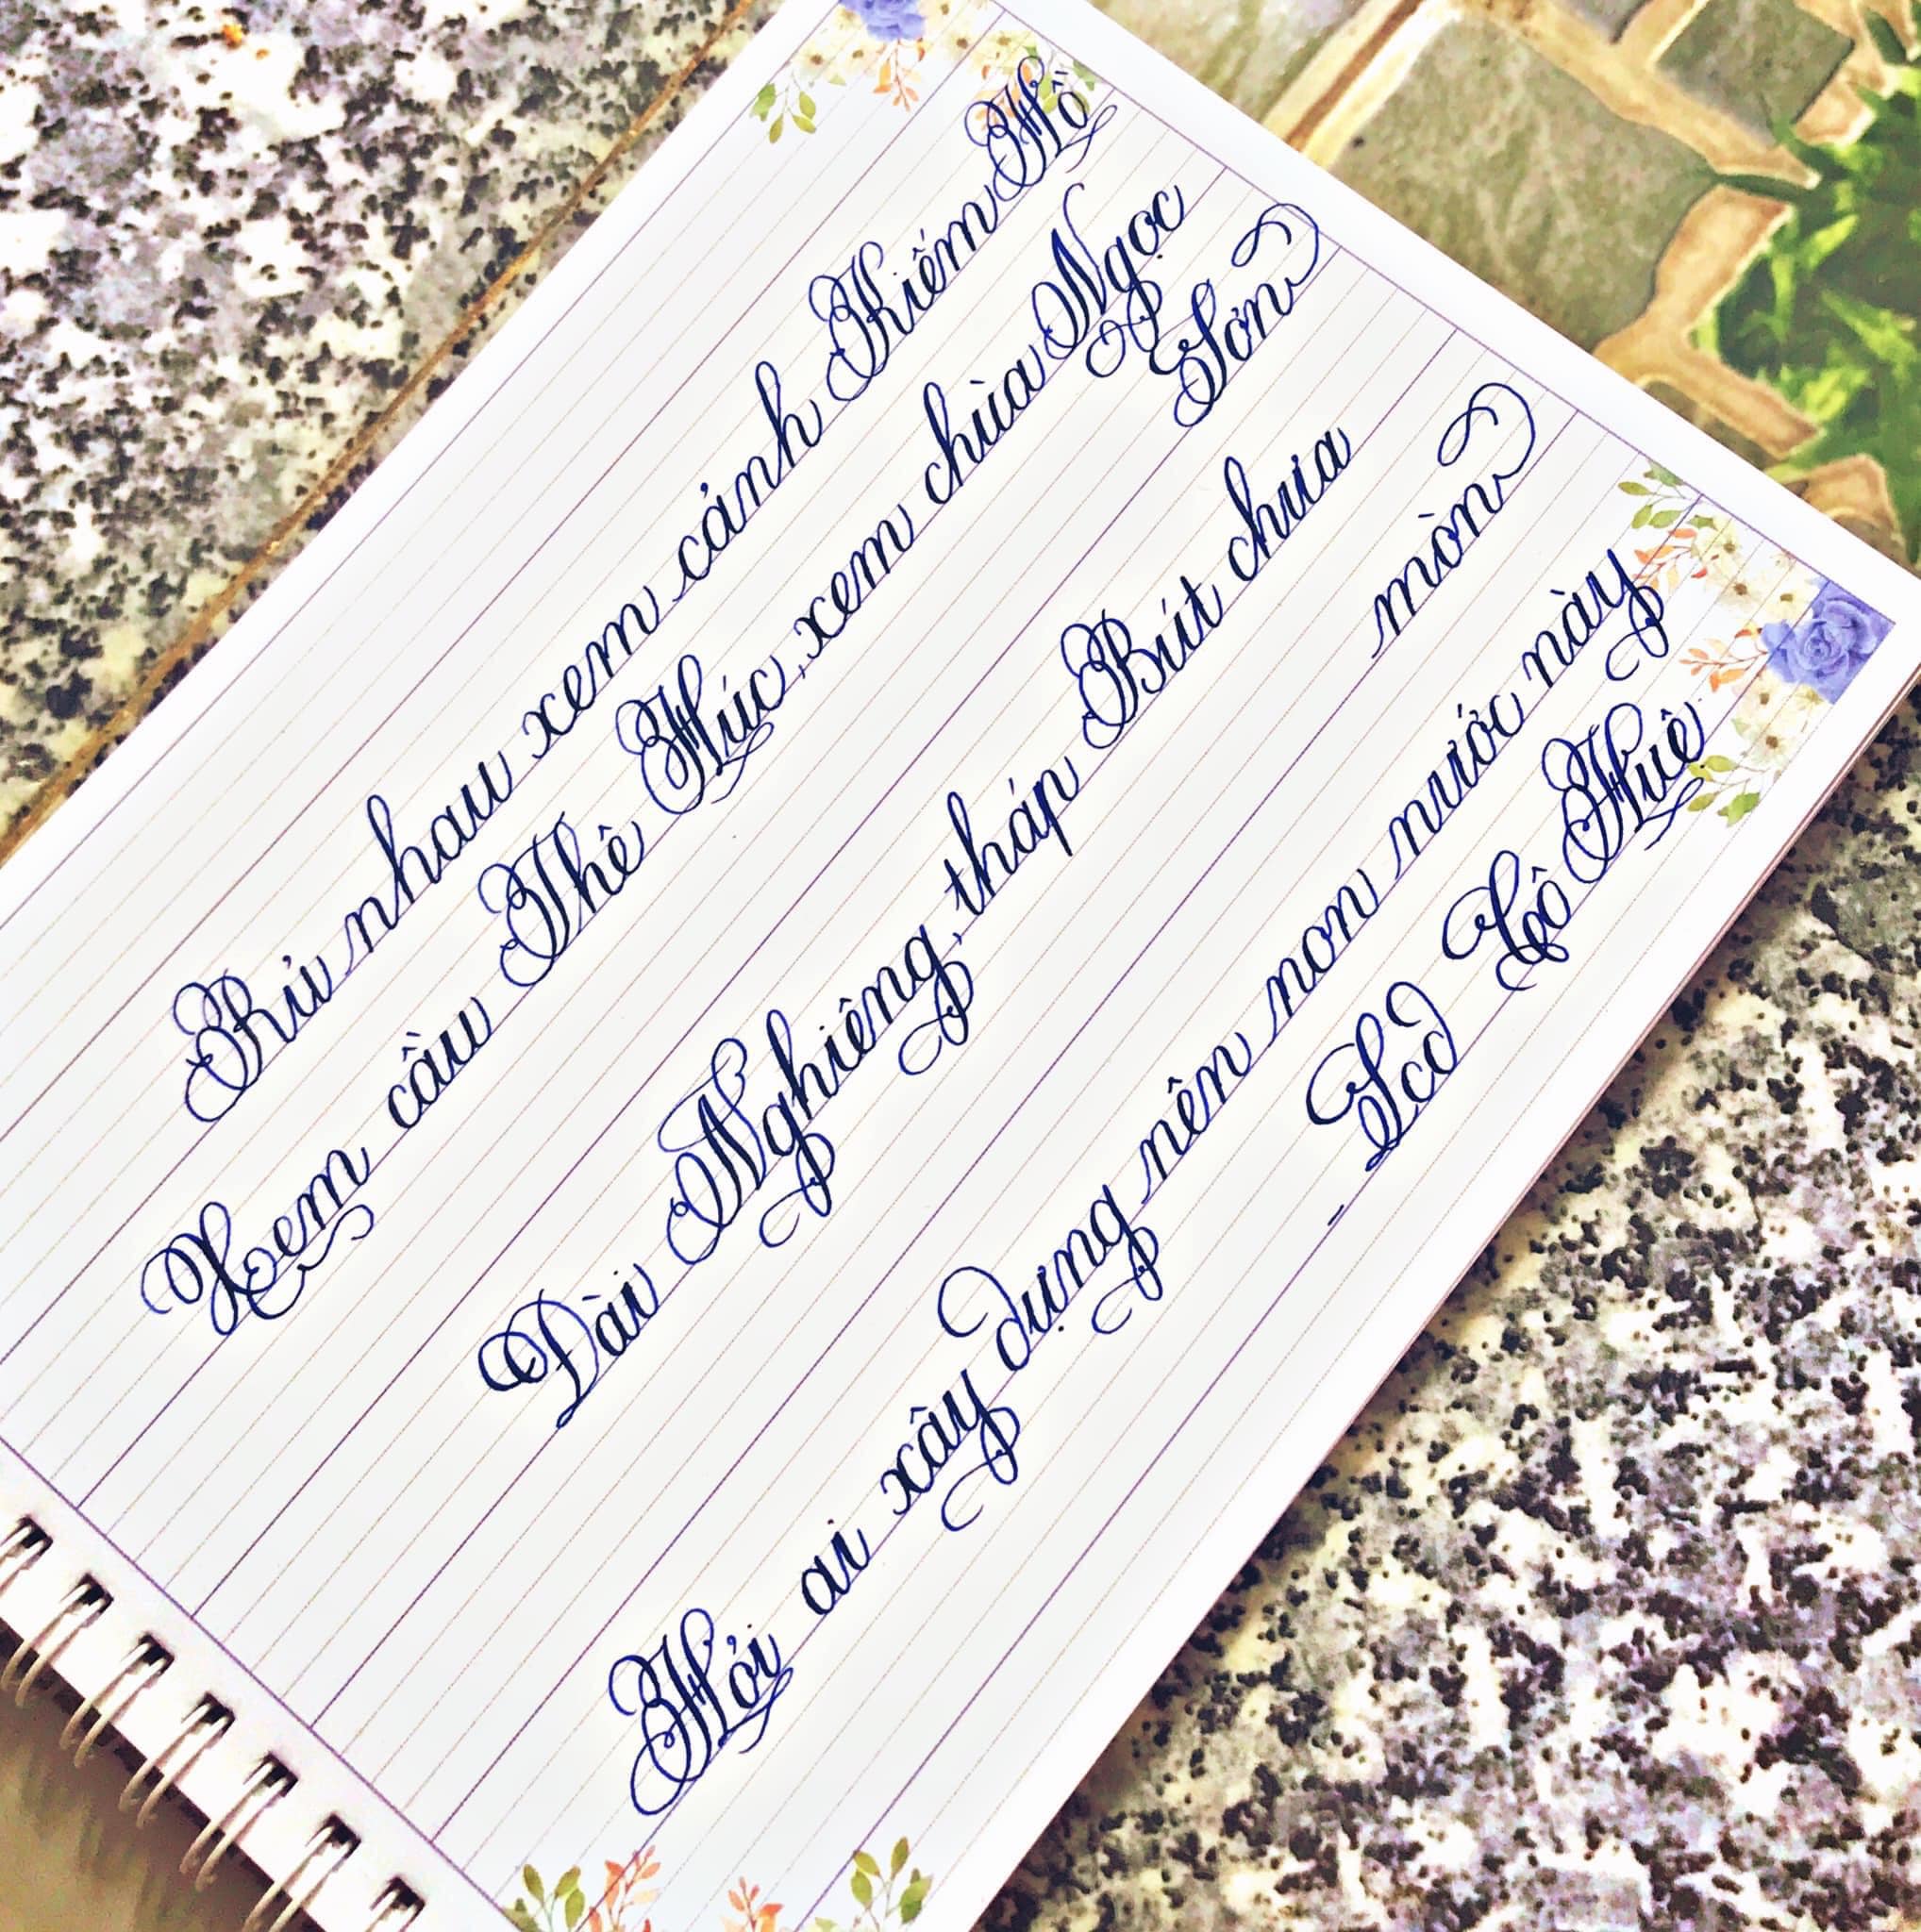 Rủ nhau xem cảnh Kiếm Hồ
Xem cầu Thê Húc, xem chùa Ngọc
Sơn
Đài Nghiêng, tháp Bút chưa
mòn
Hỏi ai xây dựng nên non nước này
- Lcd Cô Huê